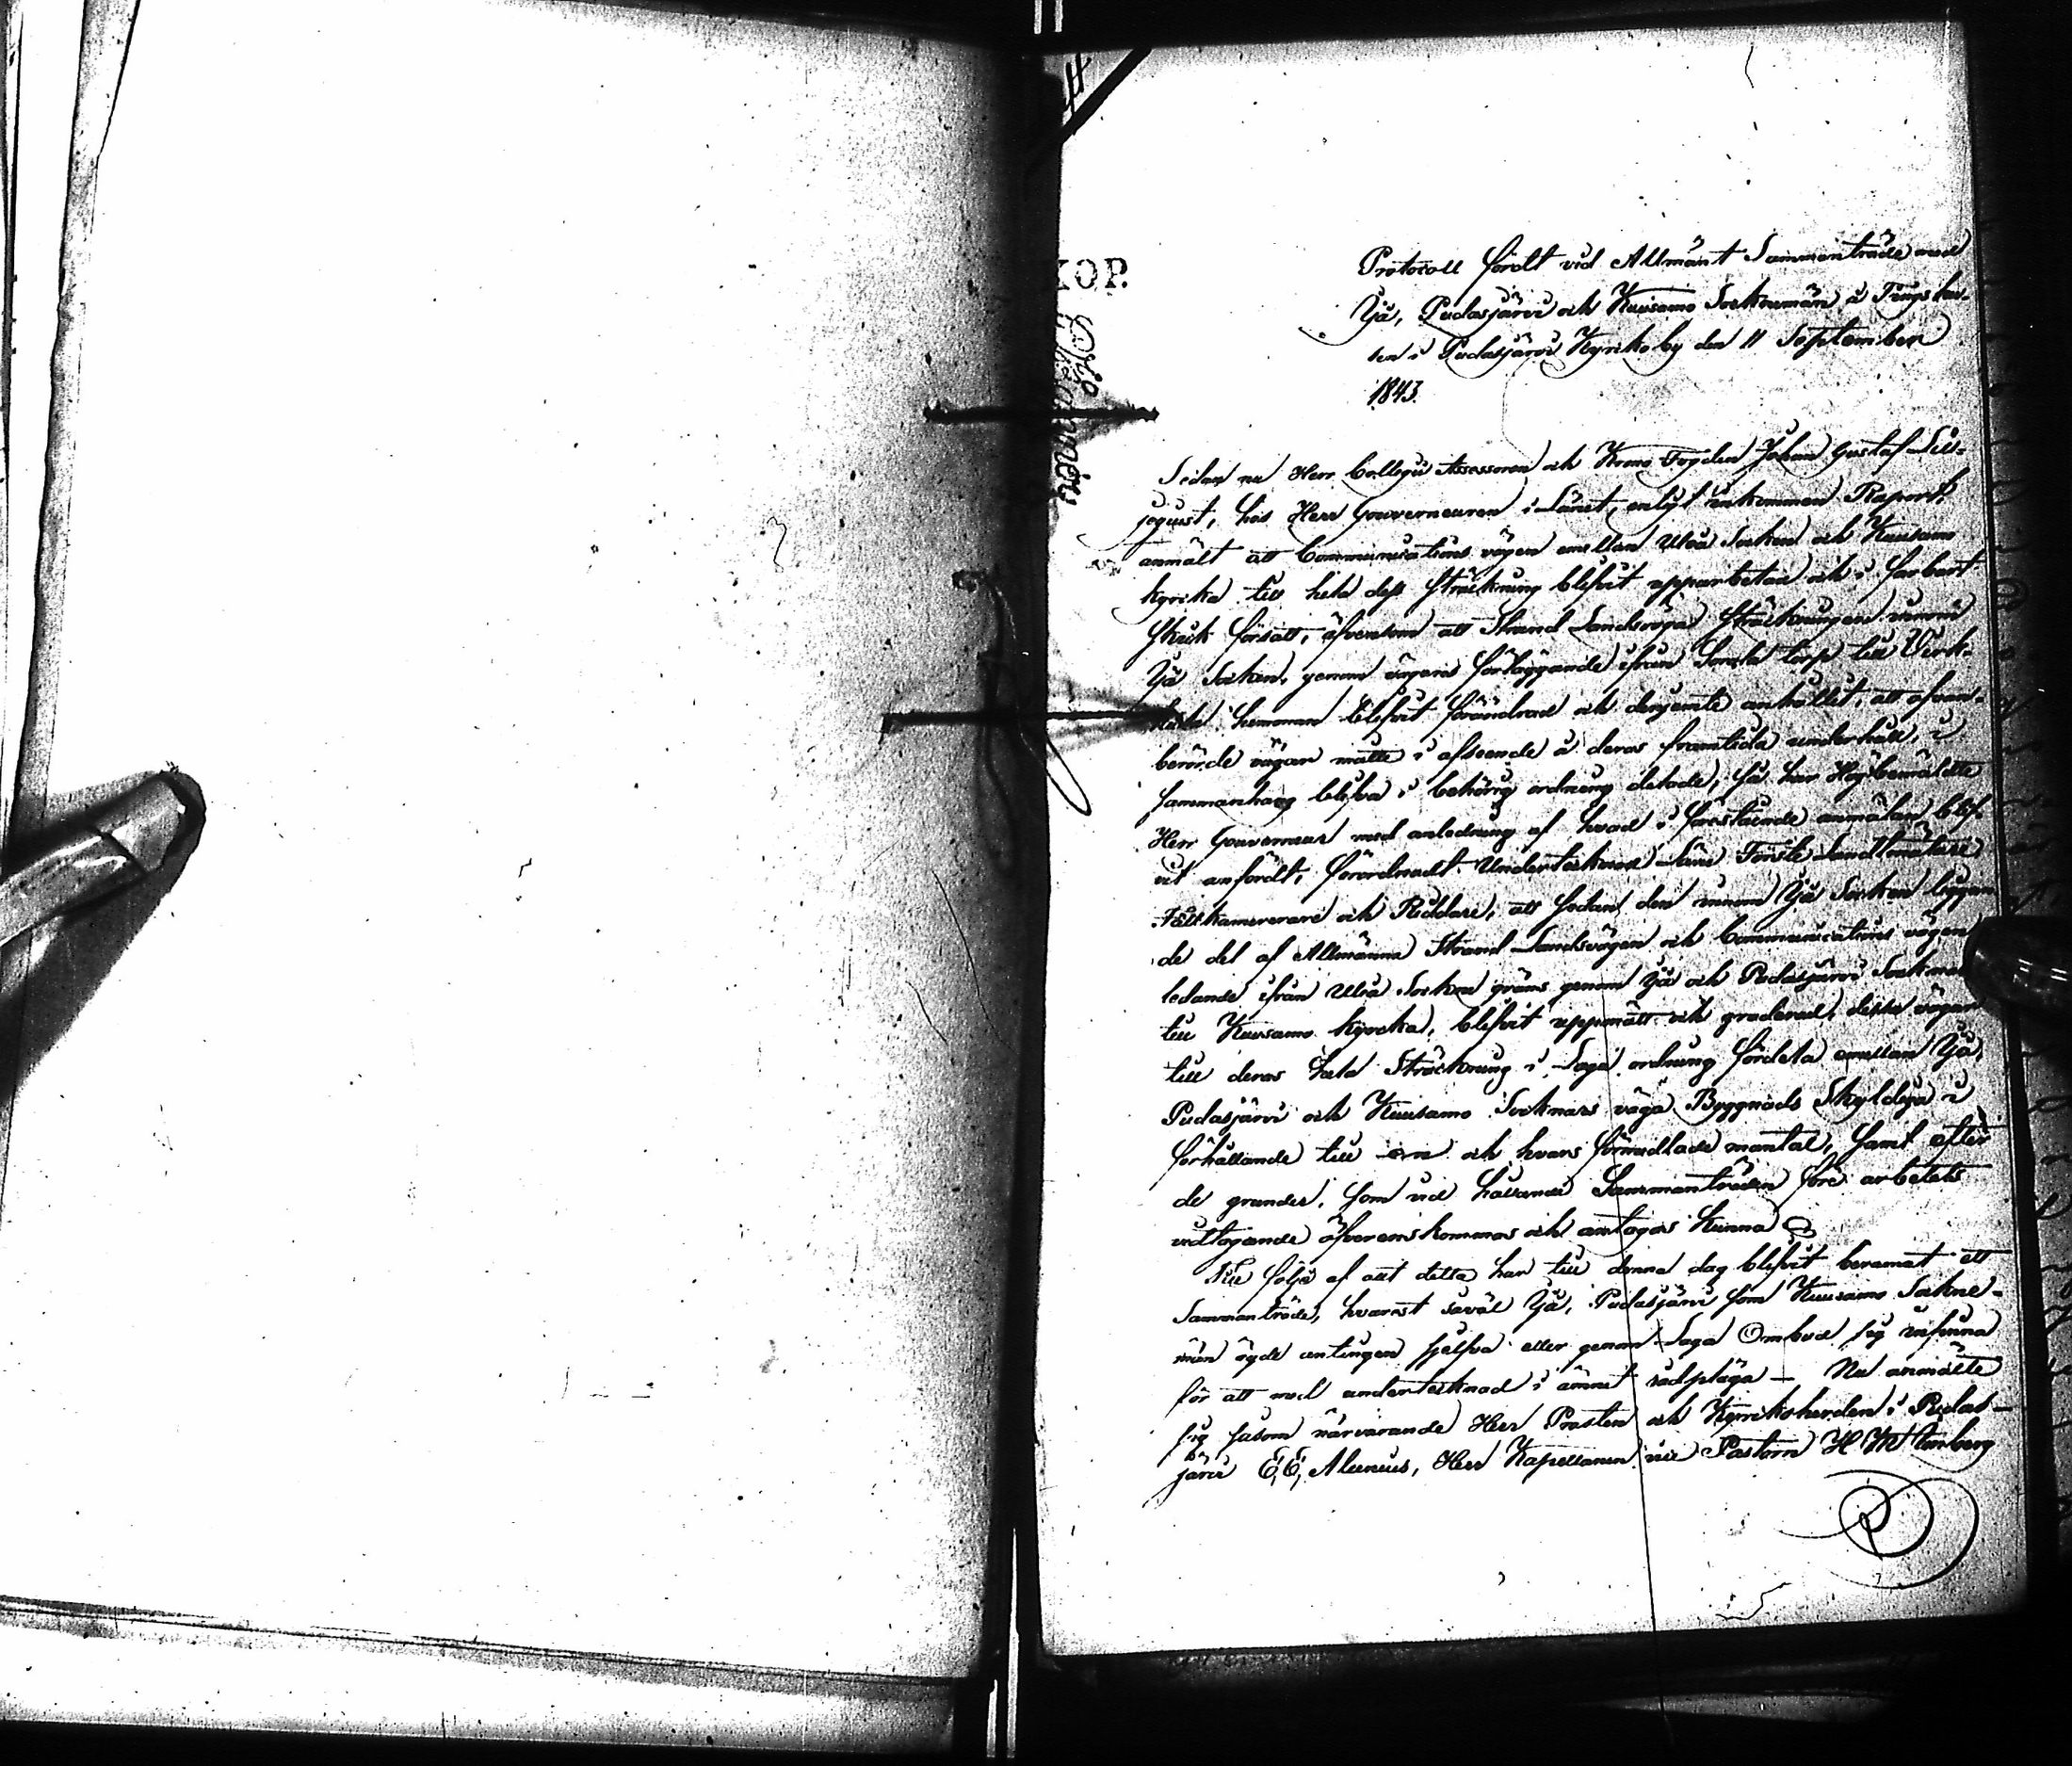 KOP.
Protocoll fördt vid Allmänt Sammanträde med
Ijå, Pudasjärvi och Kuusamo Socknemän å Tingsstu-
ten i Pudasjärvi Kyrkoby den 11 September
1843.
Sedan nu Herr Collegii Assessoren och Krono Fogden Johan Gustaf Lil-
jequist, hos Herr Gouverneuren i Länet, enligt inkommen Raport,
anmält att Communications vägen emellan Uleå Socken och Kuusamo
kyrka till hela dess sträckning blifvit upparbetad och i farbart
skick försatt, äfvensom att Strand Landsväga sträckningen innom
Ijå Socken, genom vägens förläggande ifrån Sorsla torp till Virk-
kula hemman blifvit förändrad och derjemte anhållit, att ofvan-
berörde vägar måtte i afseende å deras framtida underhåll, i
sammanhang blifva i behörig ordning delade; så har Högbemälte
Herr Gouverneur med anledning af hvad i förestående anmälan blif-
vit anfördt, förordnadt Undertecknad Läns Förste Landtmätare
Fältkamererare och Riddare, att sedan den innom Ijå Socken liggan
de del af Allmänna Strand Landsvägen och Communications vägen
ledande ifrån Uleå Sockne gräns genom Ijå och Pudasjärvi Socknar
till Kuusamo kyrka, blifvit uppmätt och graderad, dessa vägar
till deras hela Sträckning i Laga ordning fördela emellan Ijå,
Pudasjärvi och Kuusamo Socknars väga Byggnads Skyldiga i
förhållande till ens och hvars förmedlade mantal, samt efter
de grunder, som vid hållande Sammanträden före arbetets
vidtagande öfverenskommas och antagas kunna
Till följe af allt detta har till denna dag blifvit beramat ett
Sammanträde, hvarest såväl Ijå, Pudasjärvi som Kuusamo Sockne-
män ägde antingen sjelfva eller genom Laga Ombud sig infinna
för att med undertecknad i ämnet rådpläga — Nu anmälte
sig såsom närvarande Herr Prosten och Kyrkoherden i Pudas-
järvi E, E, Alcenius, Herr Kapellanen vice Pastorn H M